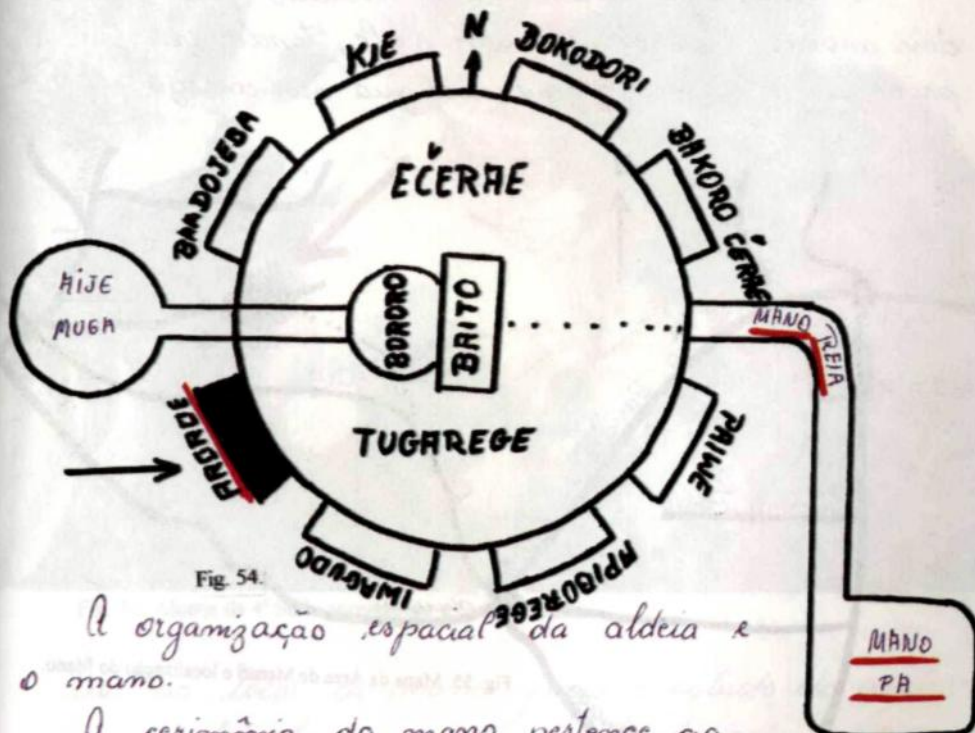 KIE
N
BOKODORI
BAADOJEBA
EĆERAE
BAKORO ĆERAE
AIJE
MUGA
BORORO
BAITO
MANO
REIA
TUGAREGE
AROROE
PAIWE
IWAGUDO
APIBOREGE
Fig. 54.
A organização espacial da aldeia e
o mano.
MANO
PA
A cerimônia do mano pertence ao